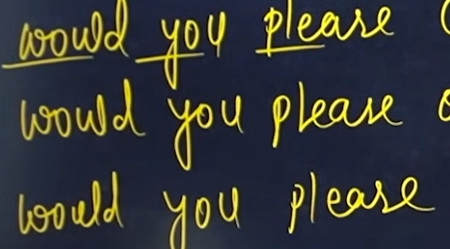 would you please
would you please
would you please